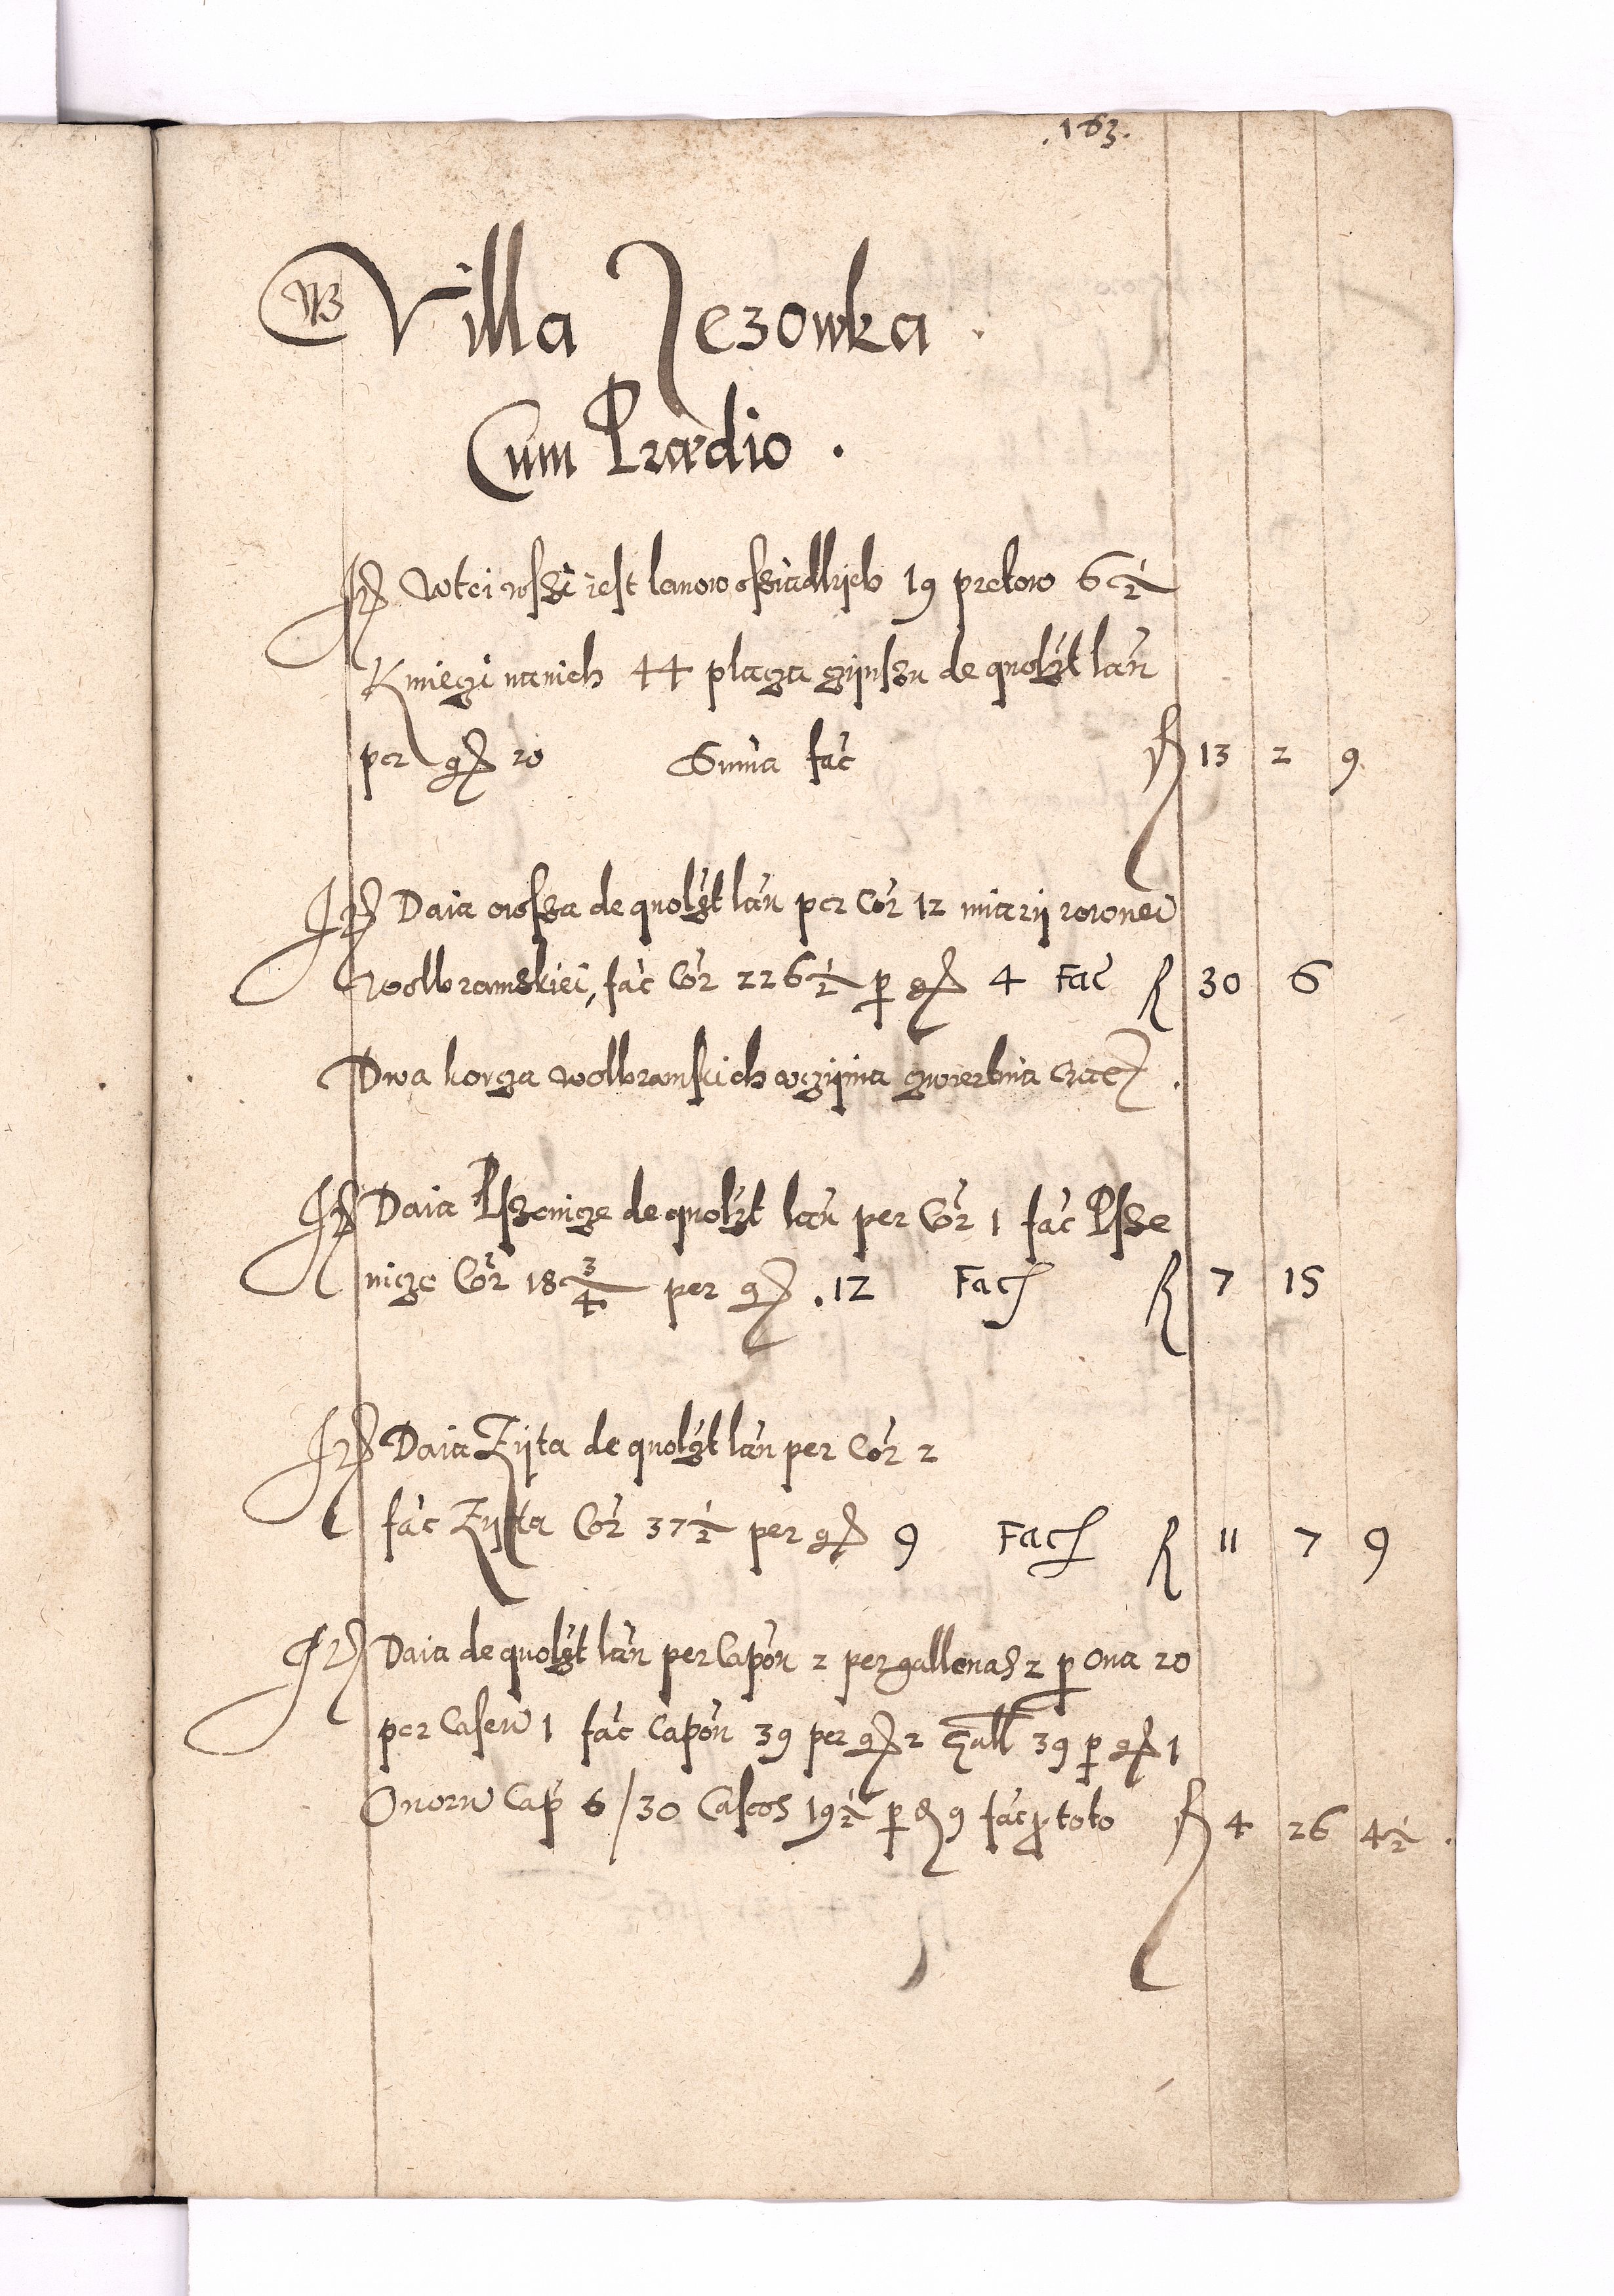 .163.
Villa Jezowka .
Cum Prædio .
Wtei wsszi iest lanow ossiadlÿch 19 pretow 6 1/2
Kmieczi nanich 44 placza czÿnszu de quolzt lan
per gr 20 Suma fac fl 13 2 9
It Daia owssa de quolzt lan per Cor 12 miarÿ rownei
wolbramskiei, fac Cor 226 1/2 p gr 4 Fac fl 30 6
Dwa korcza wolbramskich uczÿnia czwiertnia Crac .
It Daia Psзenicze de quolzt lan per Cor 1 fac Psзe
nicze Cor 18 3/4 per gr .12 Fac fl 7 15
It Daia Zÿta de quolzt lan per Cor 2
fac Zÿta Cor 37 1/2 per gr 9 Fac fl 11 7 9
It Daia de quolzt lan per Capon 2 per gallenas 2 p ova 20
per Caseu 1 fac Capon 39 per gr 2 Gall 39 p gr 1
Ovoru Cap 6/30 Caseos 19 1/2 p gr 9 fac p toto fl 4 26 4 1/2 .